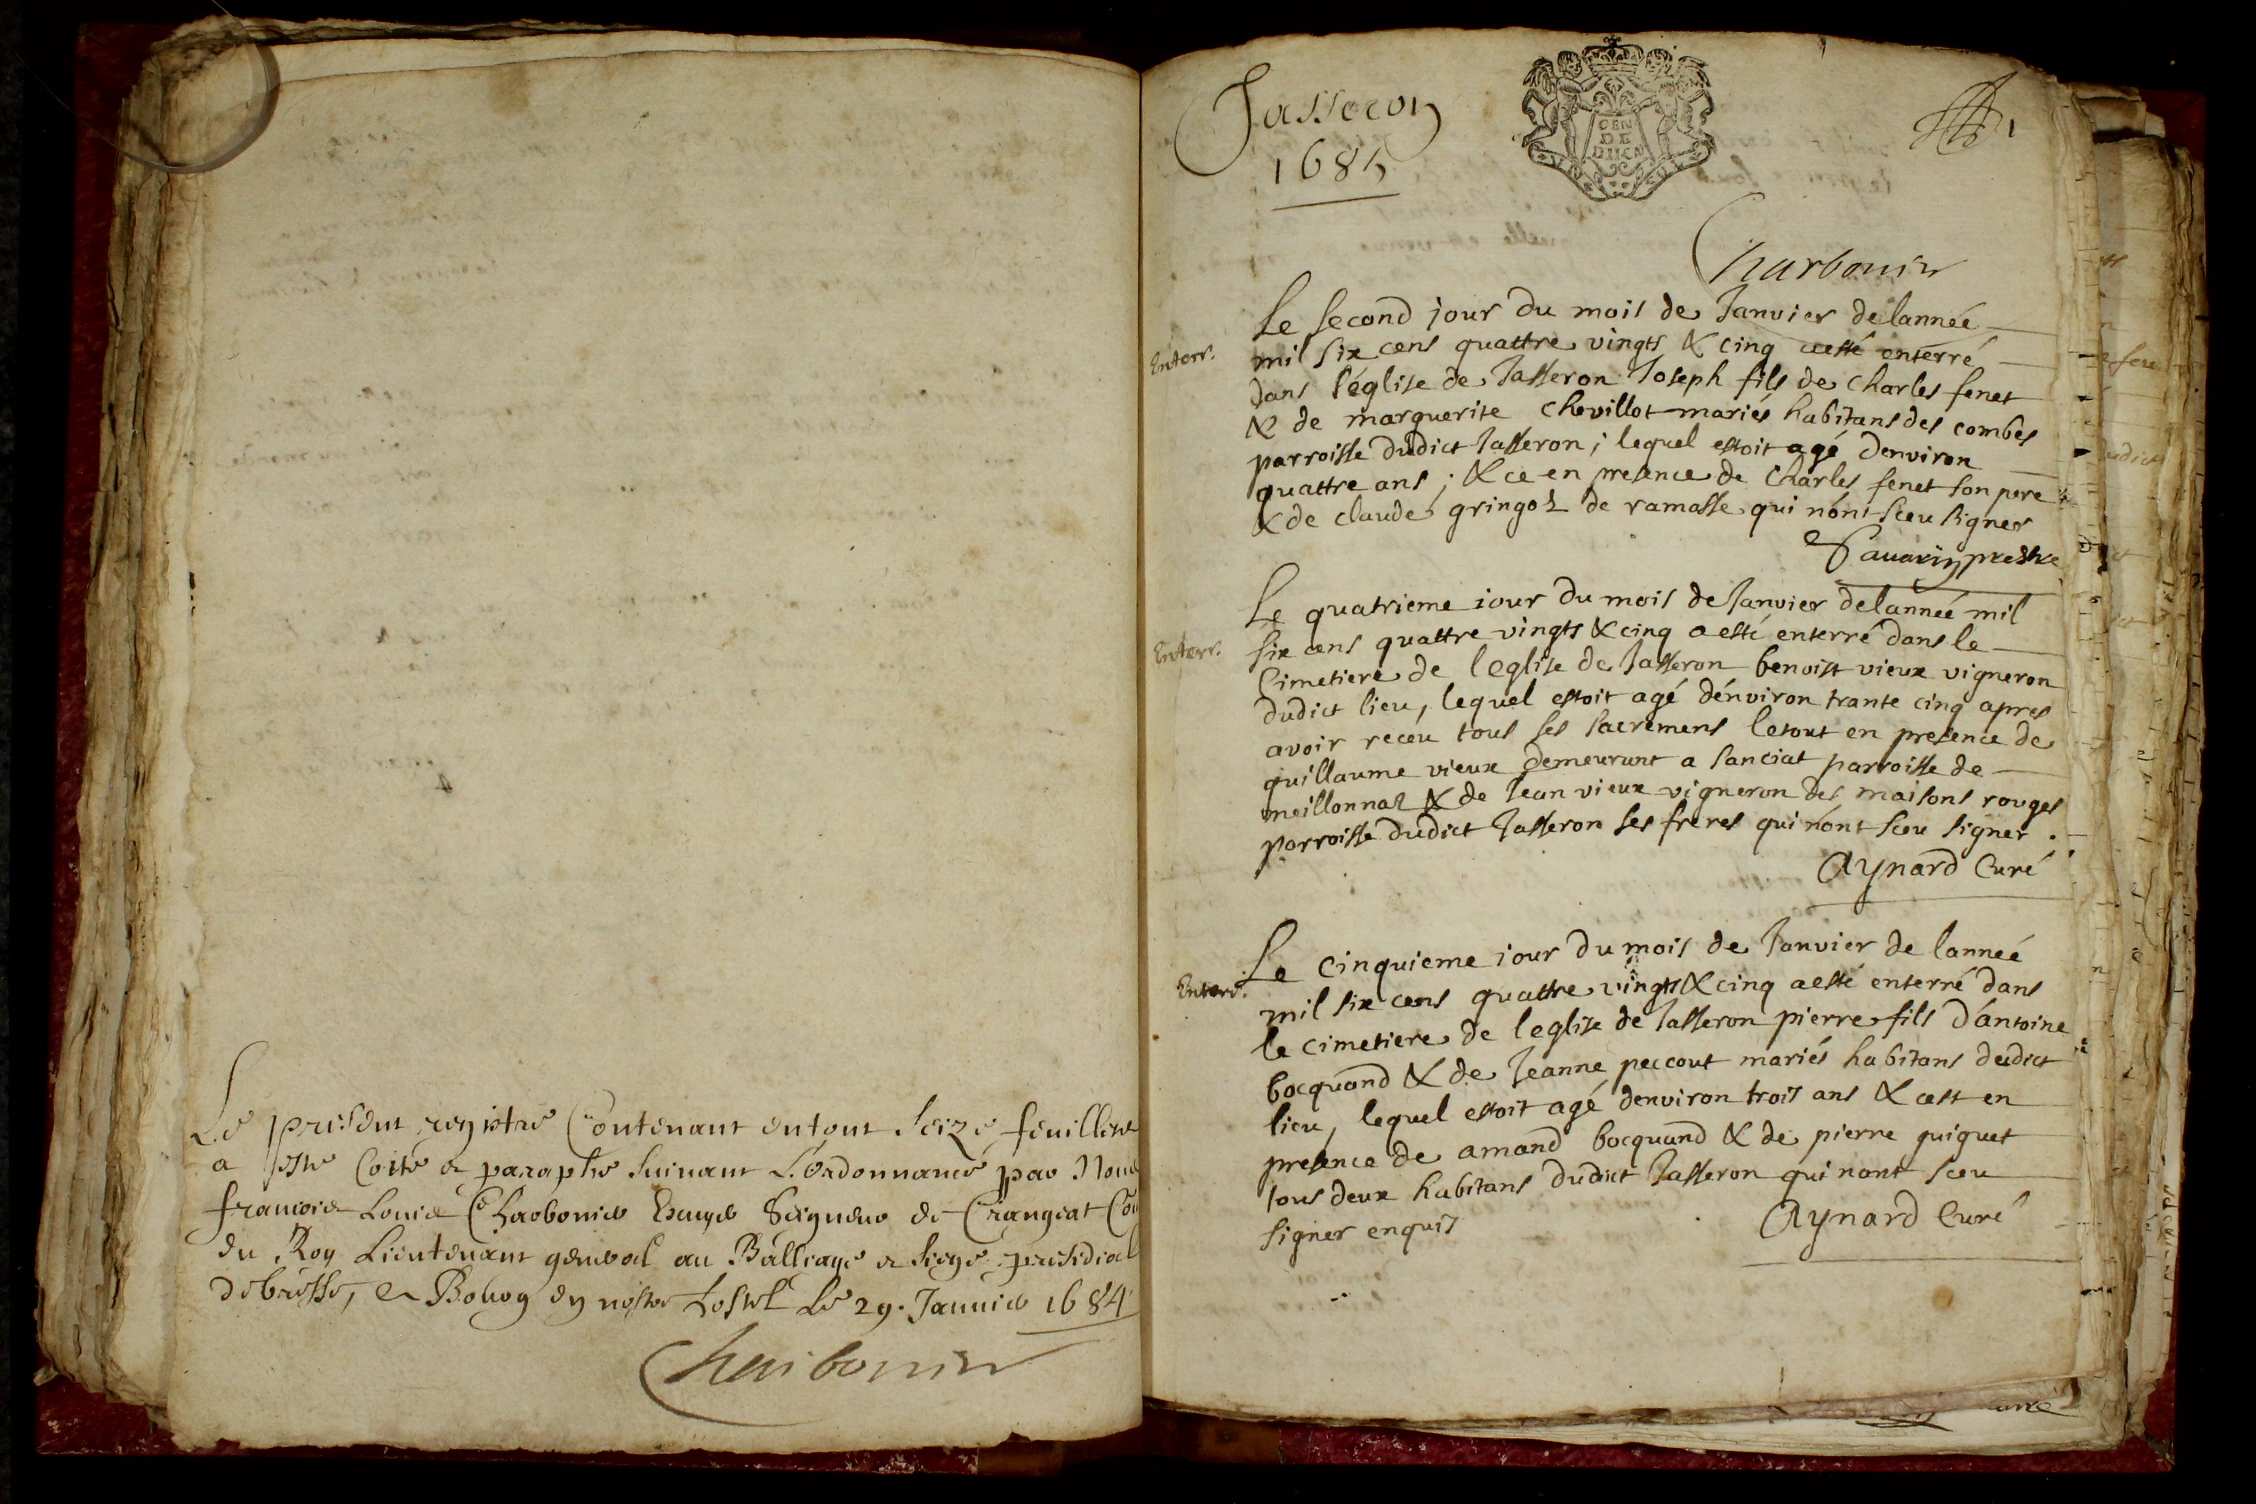 Le present registre Contenant en tout seize feuillets
a esté Cotté et paraphé suivant L'ordonnance par Nous
francois Louis Charbonier Escuyer Seigneur de Crangeat Con
du Roy Lieutenant general au Balliage et siege presidial
de bresse, A Bourg en nostre hostel Le 29. Janvier 1684
Charbonier
Jasseron
1685
GEN
DE
DIION
1
Charbonier
Le second jour du mois de Janvier de lannée
Enterr.
mil six cens quattre vingts & cinq aesté enterré
dans l'église de Jasseron Joseph fils de Charles fenet
& de marguerite Chevillot mariés habitans des combes
parroisse dudict Jasseron ; lequel estoit agé denviron
quattre ans ; & ce en presence de Charles fenet son pere
& de claude gringoz de ramasse qui nont sceu signer
Savarin prestre
Le quatrieme iour du mois de Janvier de lannée mil
Enterr.
six cens quattre vingts & cinq a esté enterré dans le
Cimetiere de l'eglise de Jasseron benoist vieux vigneron
dudict lieu, lequel estoit agé d'environ trante cinq apres
avoir receu tous ses sacremens le tout en presence de
guillaume vieux demeurant a sanciat parroisse de
meillonnaz & de Jean vieux vigneron des maisons rouges
parroisse dudict Jasseron ses freres qui nont sceu signer .
Aynard Curé
Le cinquieme iour du mois de Janvier de lanneé
Enterr.
mil six cens quattre vingts & cinq aesté enterré dans
le cimetiere de l'eglise de Jasseron pierre fils d'antoine
bocquand & de Jeanne peccout mariés habitans dudict
lieu, lequel estoit agé denviron trois ans & cest en
presence de amand bocquand & de pierre guiguet
tous deux habitans dudict Jasseron qui nont sceu
signer enquis
Aynard Curé